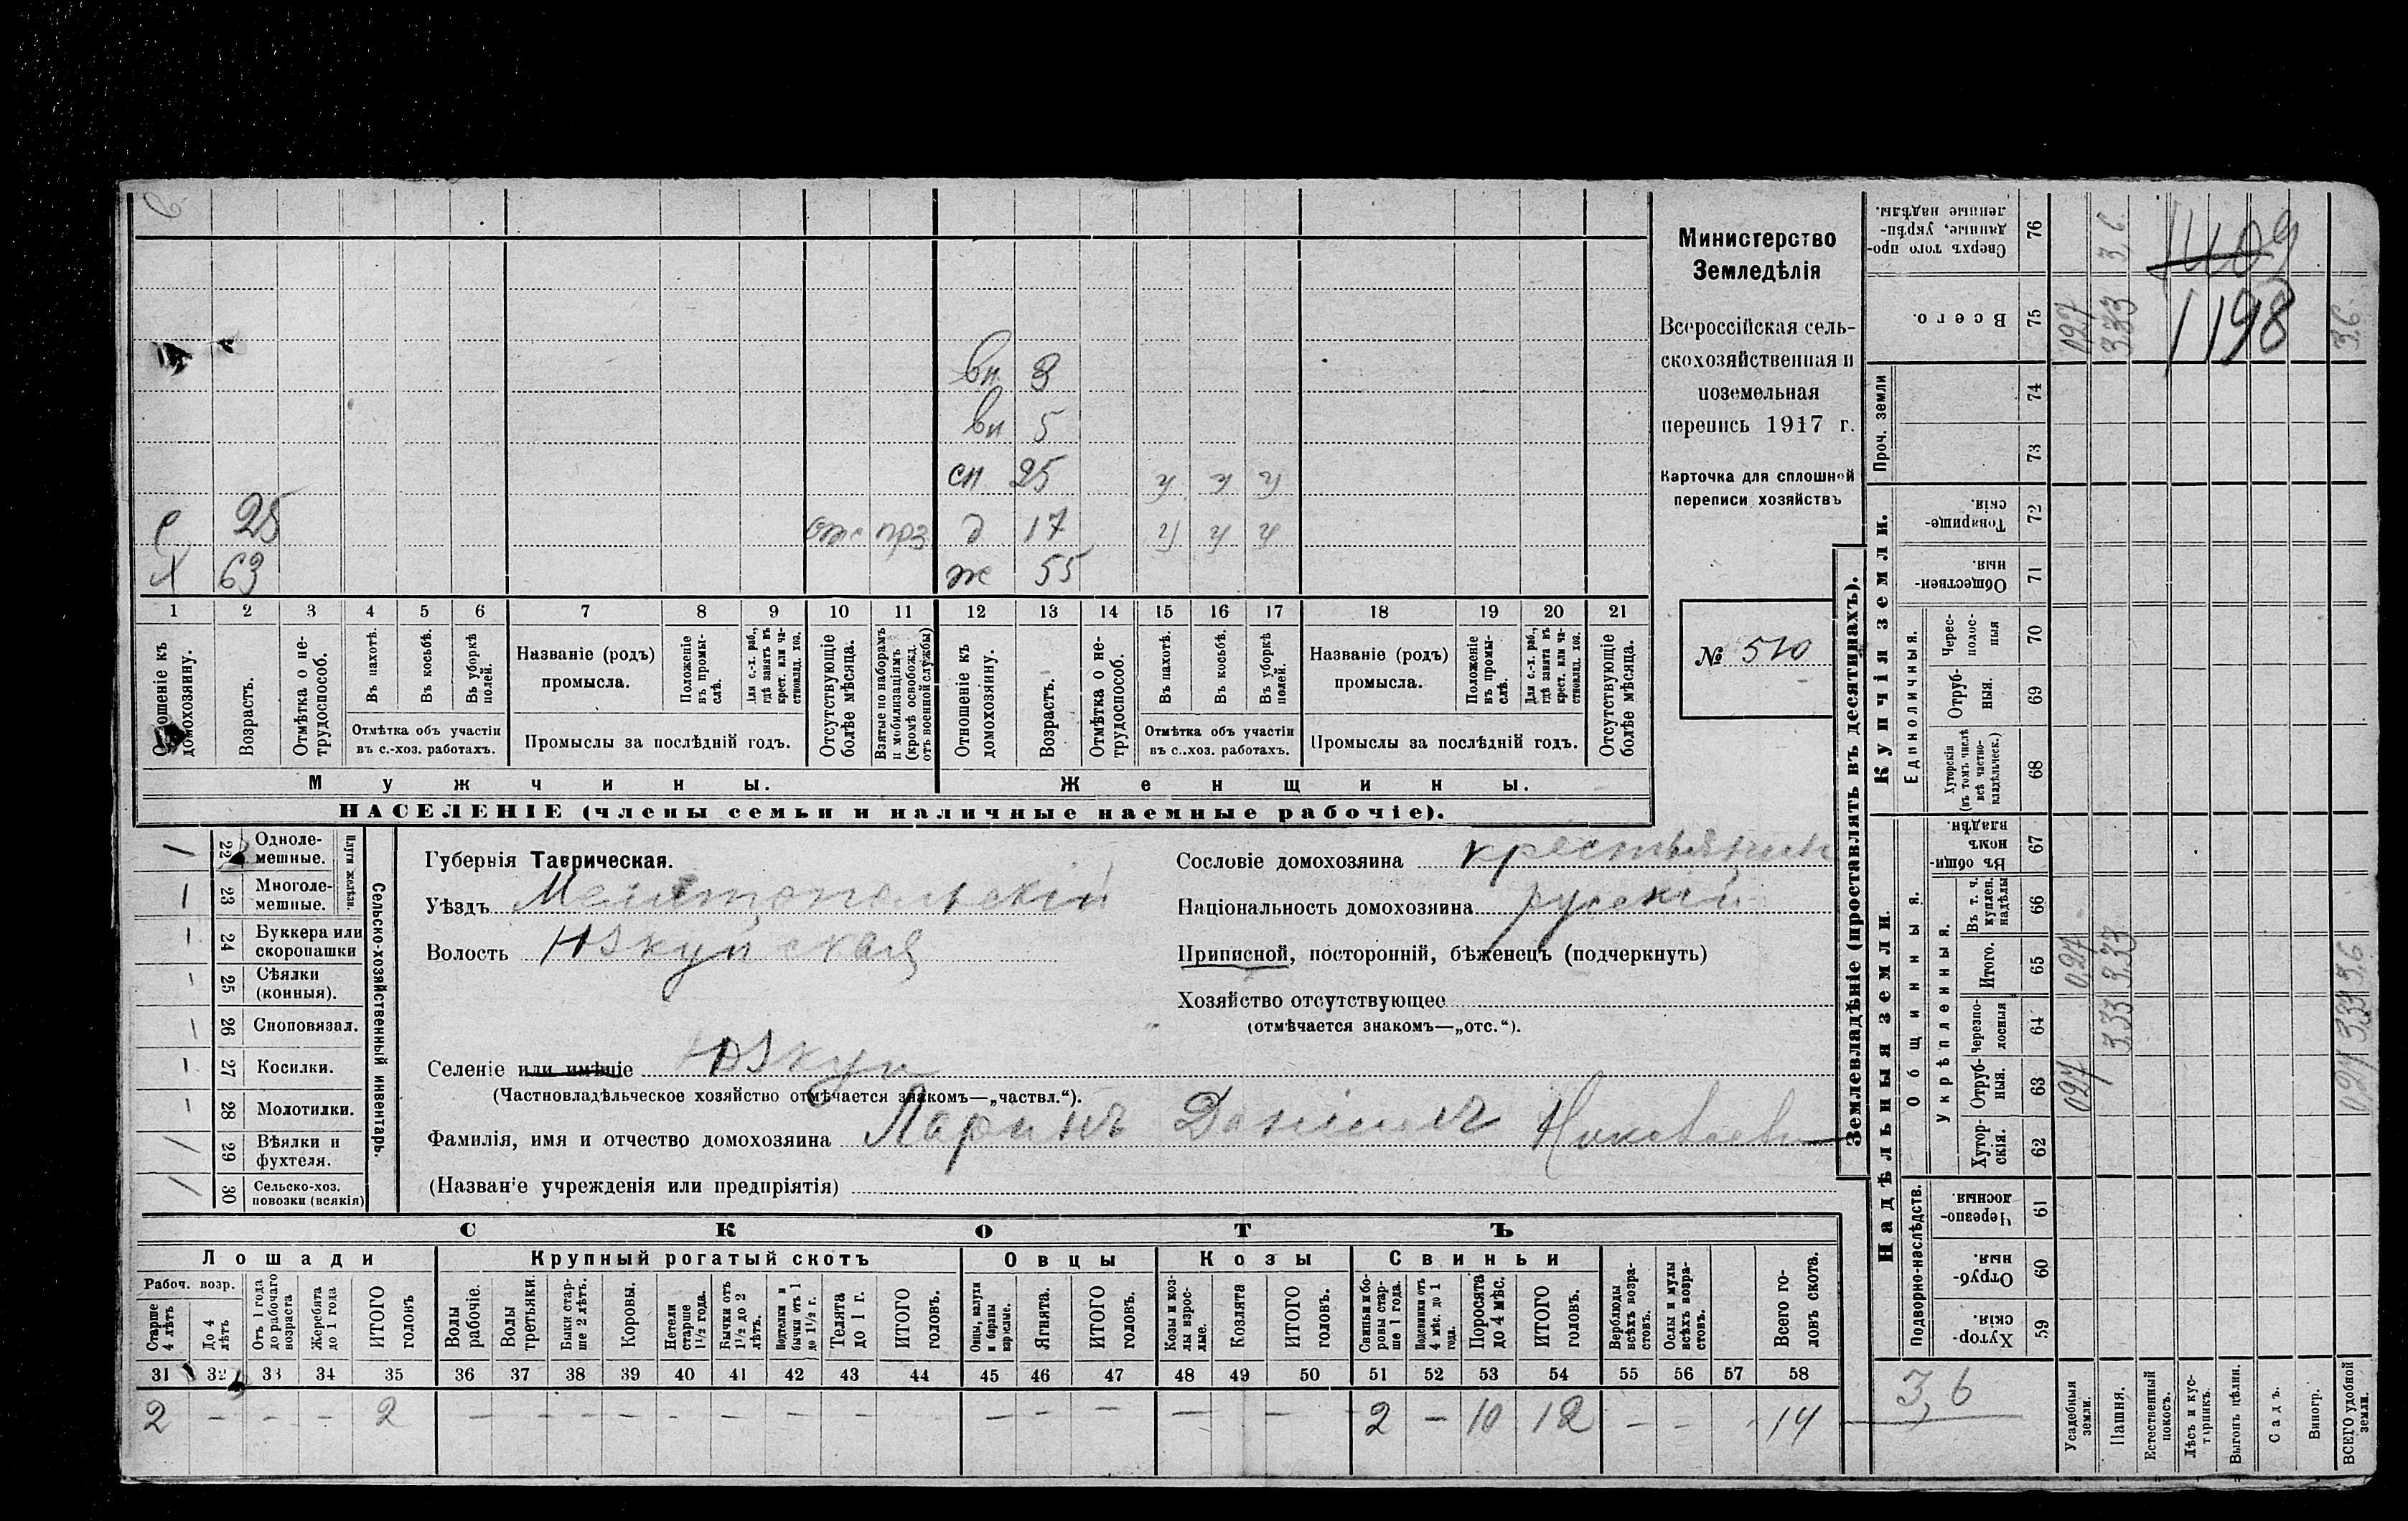 вн 3
вн 5
сн 25 у у у
с 25 отс прз д 17 у у у
Х 63 ж 55
1 2 3 4 5 6 7 8 9 10 11 12 13 14 15 16 17 18 19 20 21
Отношеніе къ домохозяину.
Возрастъ.
Отмѣтка о не-
трудоспособ.
Въ пахотѣ.
Въ косьбѣ.
Въ уборкѣ
полей.
Отмѣтка объ участіи
въ с.-хоз. работахъ.
Названіе (родъ)
промысла.
Положеніе
въ промы-
слѣ.
Для с.-х. раб.,
гдѣ занятъ въ
крест. или ча-
стновлад. хоз.
Промыслы за послѣдній годъ.
Отсутствующіе
болѣе мѣсяца.
Взятые по наборамъ
и мобилизаціямъ
(кромѣ освобожд.
отъ военной службы)
Отношеніе къ
домохозяину.
Возрастъ.
Отмѣтка о не-
трудоспособ.
Въ пахотѣ.
Въ косьбѣ.
Въ уборкѣ
полей.
Отмѣтка объ участіи
въ с.-хоз. работахъ.
Названіе (родъ)
промысла.
Положеніе
въ промы-
слѣ.
Для с.-х. раб.,
гдѣ занята въ
крест. или ча-
стновлад. хоз.
Промыслы за послѣдній годъ.
Отсутствующіе
болѣе мѣсяца.
Мужчины.
Женщины.
НАСЕЛЕНІЕ (члены семьи и наличные наемные рабочіе).
Министерство
Земледѣлія
Всероссійская сель-
скохозяйственная и
поземельная
перепись 1917 г.
Карточка для сплошной
переписи хозяйствъ
№ 510
22 Одноле-
мешные.
23 Многоле-
мешные.
Плуги желѣзн.
24 Буккера или
скоропашки
25 Сѣялки
(конныя).
26 Сноповязал.
27 Косилки.
28 Молотилки.
29 Вѣялки и
фухтеля.
30 Сельско-хоз.
повозки (всякія)
Сельско-хозяйственный инвентарь.
Губернія Таврическая.
Уѣздъ Мелитопольскій
Волость Юзкуйская
Селеніе или имѣніе Юзкуи
(Частновладѣльческое хозяйство отмѣчается знакомъ—„частвл.“).
Фамилія, имя и отчество домохозяина Ларинъ Даніилъ
(Названіе учрежденія или предпріятія)
Сословіе домохозяина крестьянин
Національность домохозяина русскій
Приписной, посторонній, бѣженецъ (подчеркнуть)
Хозяйство отсутствующее
(отмѣчается знакомъ—„отс.“).
СКОТЪ
Лошади
Рабоч. возр.
Старше
4 лѣтъ
До 4
лѣтъ
Отъ 1 года
до рабочаго
возраста
Жеребята
до 1 года
ИТОГО
головъ
Крупный рогатый скотъ
Волы
рабочіе.
Волы
третьяки.
Быки стар-
ше 2 лѣтъ.
Коровы.
Нетели
старше
1½ года.
Бычки отъ
1½ до 2
лѣтъ.
Подтелки и
бычки отъ 1
до 1½ г.
Телята
до 1 г.
ИТОГО
головъ.
Овцы
Овцы, валухи
и бараны
взрослые.
Ягнята.
ИТОГО
головъ.
Козы
Козы и коз-
лы взрос-
лые.
Козлята
ИТОГО
головъ.
Свиньи
Свиньи и бо-
ровы стар-
ше 1 года.
Подсвинки отъ
4 мѣс. до 1
года.
Поросята
до 4 мѣс.
ИТОГО
головъ.
Верблюды
всѣхъ возра-
стовъ.
Ослы и мулы
всѣхъ возра-
стовъ.
Всего го-
ловъ скота.
31 32 33 34 35 36 37 38 39 40 41 42 43 44 45 46 47 48 49 50 51 52 53 54 55 56 57 58
2 — — — 2 — — — — — — — — — — — — — — — 2 — 10 12 — — - 14
Землевладѣніе (проставлять въ десятинахъ).
Надѣльныя земли.
Подворно-наслѣдств.
Хутор-
скія. 59
Отруб-
ныя. 60
Черезпо-
лосныя 61
Общинныя.
Укрѣпленныя.
Хутор-
скія. 62
Отруб-
ныя. 63
Черезпо-
лосныя 64
Итого. 65
Въ т. ч.
куплен.
надѣлы 66
Въ общин-
номъ
владѣн. 67
Купчія земли.
Единоличныя.
Хуторскія
(въ томъ числѣ
всѣ частно-
владѣльческ.) 68
Отруб-
ныя. 69
Черес-
полос-
ныя 70
Обществен-
ныя. 71
Товарище-
скія 72
Проч. земли
73 74
Всего. 75
Сверхъ того про-
данные, укрѣп-
ленные надѣлы. 76
Усадебныя
земли.
027 027 027
Пашня.
3.33 3.33 3.33 3,6
Естественный
покосъ.
Лѣсъ и кус-
тарникъ.
Выгонъ цѣлин.
Садъ.
Виногр.
ВСЕГО удобной
земли.
027 3.33 3.6 3.6
1409
1198
3,6